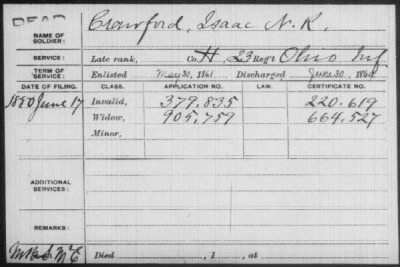 DEAD
NAME OF SOLDIER: Crawford, Isaac N. K.
SERVICE: Late rank, Co. H. 23 Reg't Ohio Inf.
TERM OF SERVICE: Enlisted May 30, 1861 Discharged June 30, 1864
DATE OF FILING. CLASS. APPLICATION NO. LAW. CERTIFICATE NO.
1880 June 17 Invalid, 379.835 220.619
Widow, 905,759 664.527
Minor,
ADDITIONAL SERVICES:
REMARKS:
Died , 1 , at